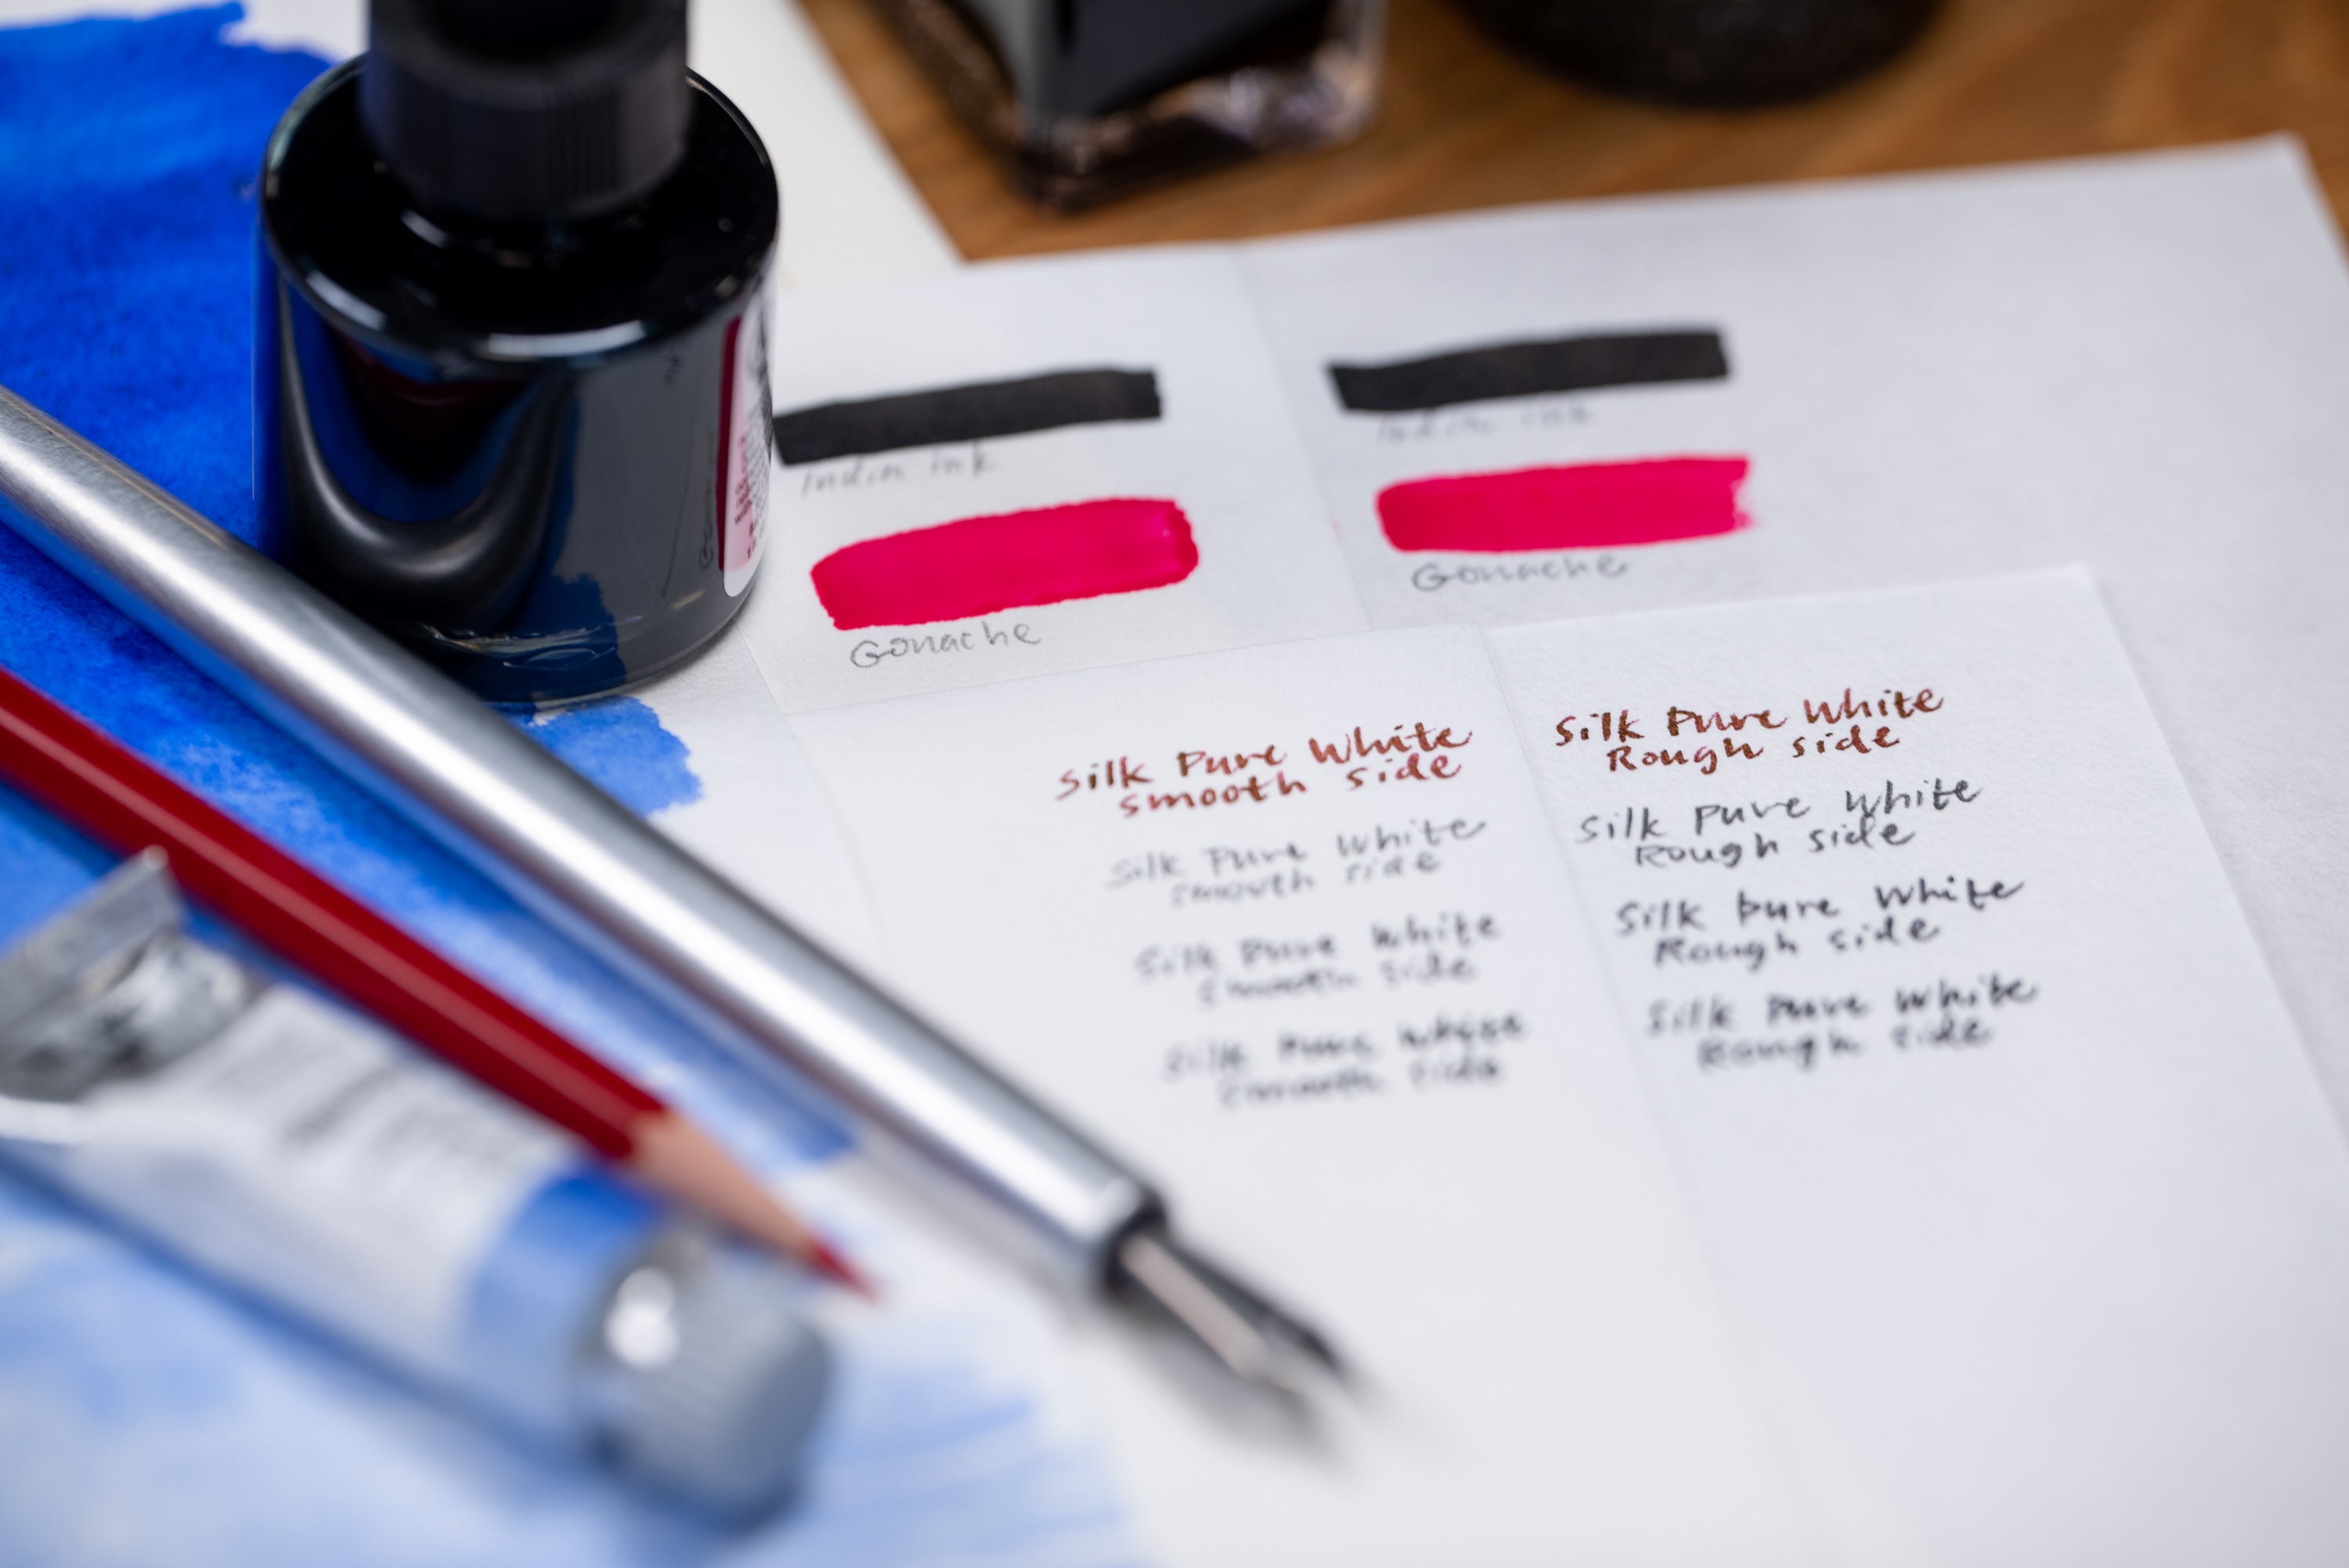 Indin ink
Gouache
Indin ink
Gouache
Silk Pure White
smooth side
Silk Pure White
smooth side
Silk Pure White
smooth side
Silk Pure White
smooth side
Silk Pure White
Rough side
Silk Pure White
Rough side
Silk pure White
Rough side
Silk Pure White
Rough side